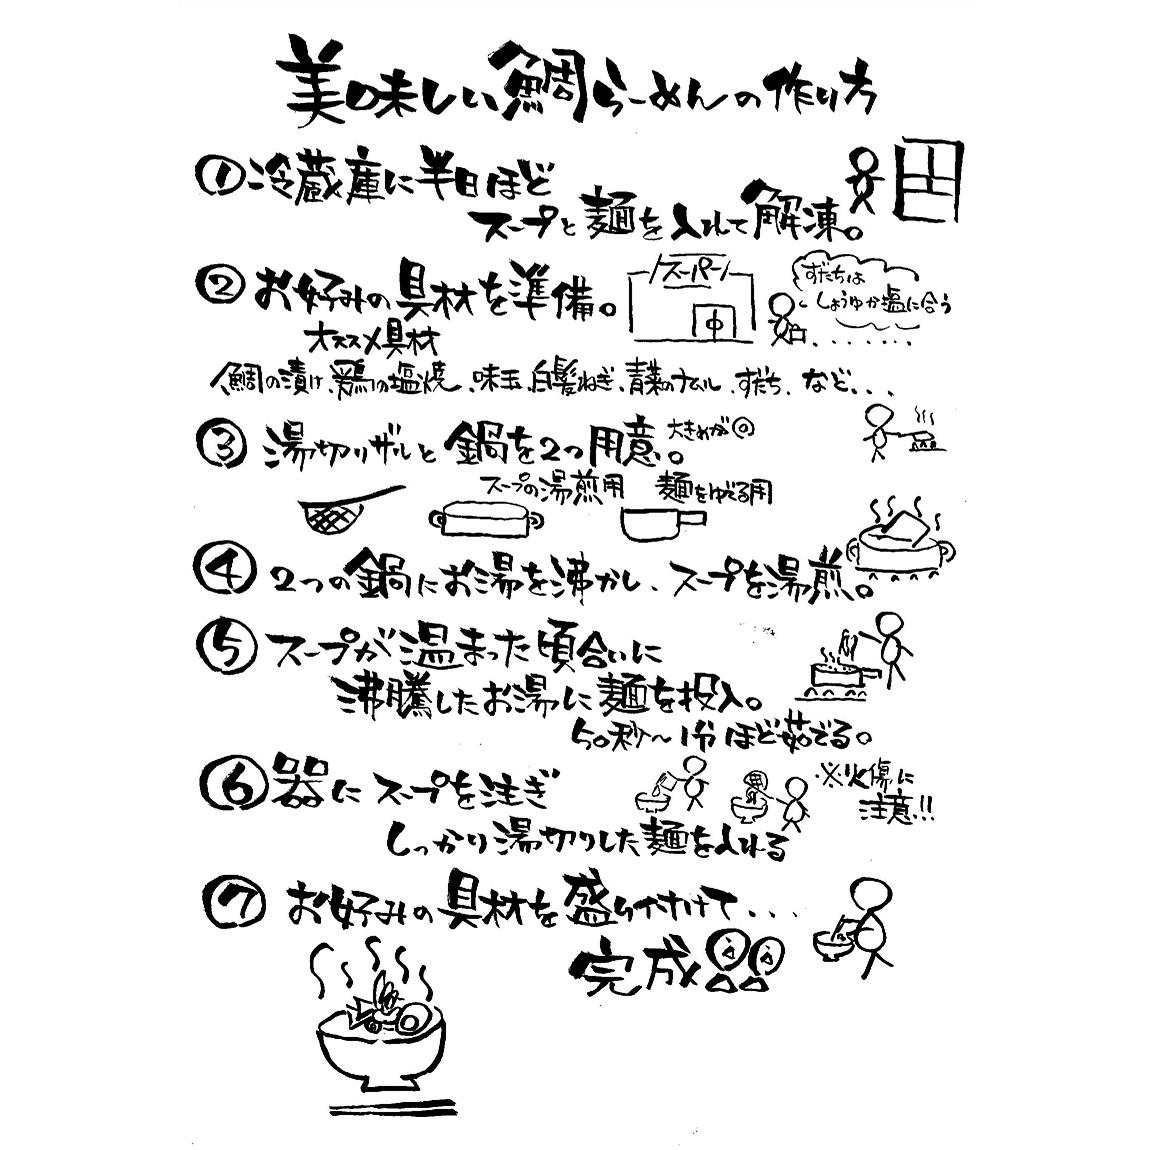 美味しい鯛らーめんの作り方
①冷蔵庫に半日ほど
スープと麺を入れて解凍。
②お好みの具材を準備。
スーパー
すだちは
しょうゆか塩に合う
・・・・・・・
オススメ具材
鯛の漬け、鶏の塩焼、味玉、白髪ねぎ、青菜のナムル、すだち、など...
③湯切りザルと鍋を2つ用意。大きめが◎
スープの湯煎用 麺をゆでる用
④2つの鍋にお湯を沸かし、スープを湯煎。
⑤スープが温まった頃合いに
沸騰したお湯に麺を投入。
50秒〜1分ほど茹でる。
⑥器にスープを注ぎ
※火傷に
注意!!
しっかり湯切りした麺を入れる
⑦お好みの具材を盛り付けて...
完成!!